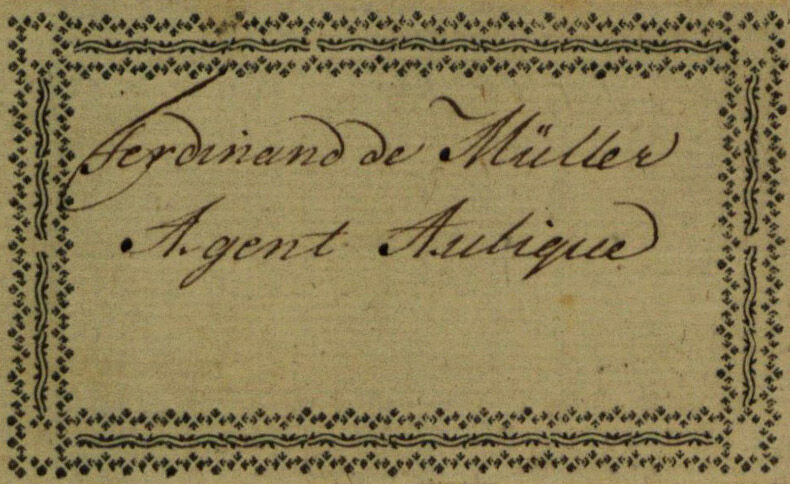 Ferdinand de Müller
Agent Aulique